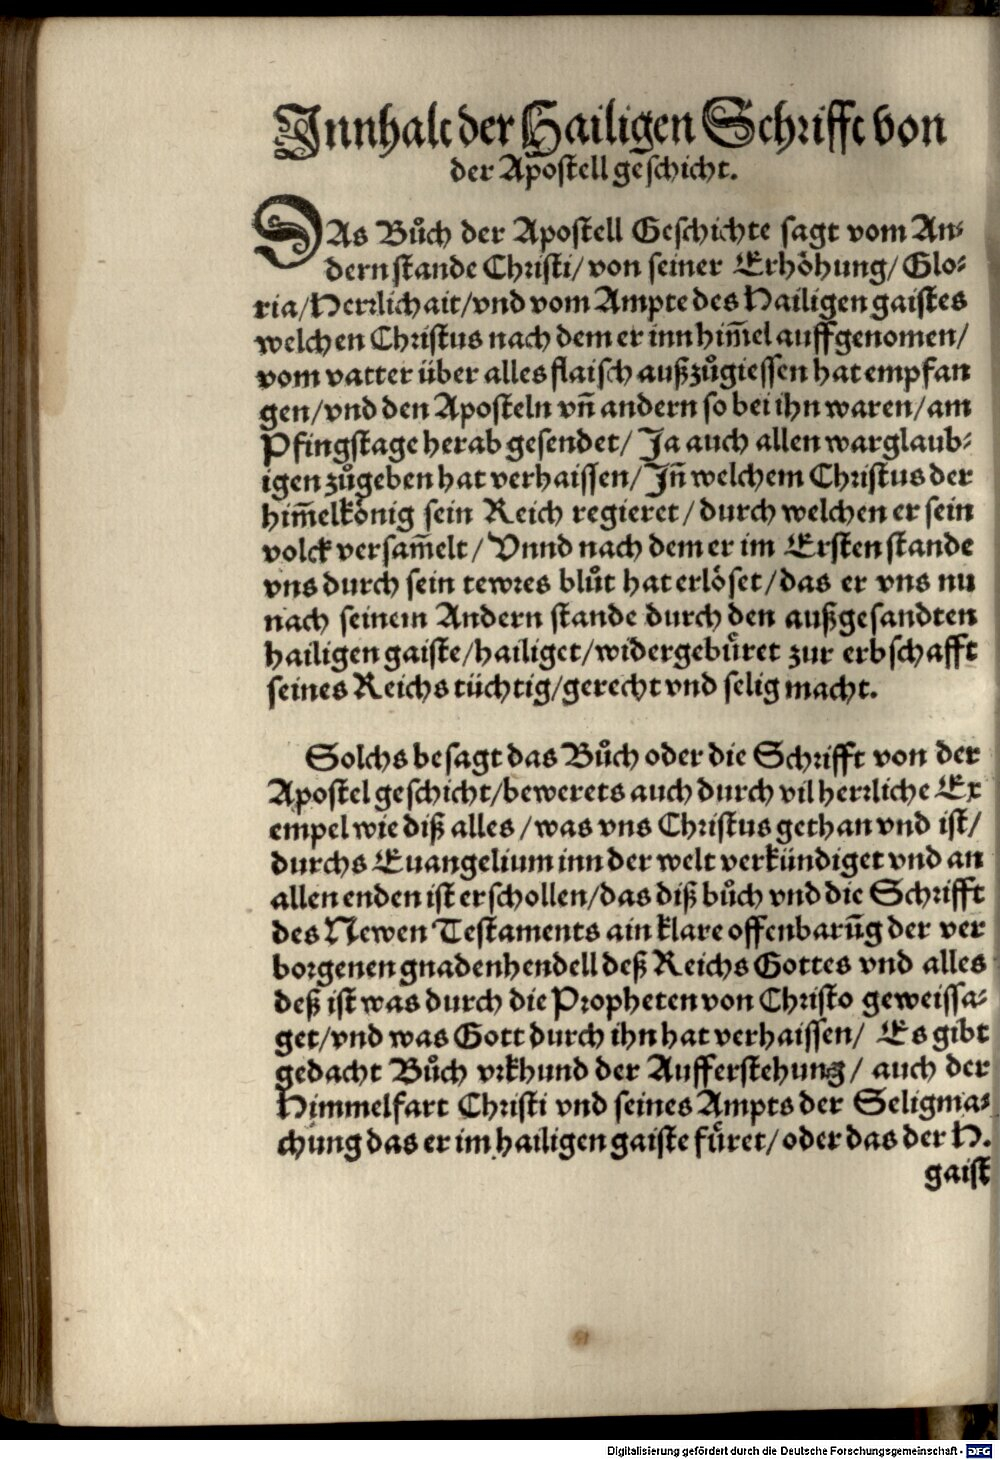 Innhalt der Hailigen Schrifft von
der Apostell geschicht.
DAs Bůch der Apostell Geschichte sagt vom An⸗
dern stande Christi/ von seiner Erhöhung/ Glo⸗
ria/ Herrlichait/ vnd vom Ampte des Hailigen gaistes
welchen Christus nach dem er inn him̄el auffgenomen/
vom vatter über alles flaisch außzůgiessen hat empfan
gen/ vnd den Aposteln vn̄ andern so bei ihn waren/ am
Pfingstage herab gesendet/ Ja auch allen warglaub⸗
igen zůgeben hat verhaissen/ Jn̄ welchem Christus der
him̄elkönig sein Reich regieret/ durch welchen er sein
volck versam̄elt/ Vnnd nach dem er im Ersten stande
vns durch sein tewres blůt hat erlöset/ das er vns nu
nach seinem Andern stande durch den außgesandten
hailigen gaiste/ hailiget/ widergebüret zur erbschafft
seines Reichs tüchtig/ gerecht vnd selig macht.
Solchs besagt das Bůch oder die Schrifft von der
Apostel geschicht/ bewerets auch durch vil herrliche Ex
empel wie diß alles/ was vns Christus gethan vnd ist/
durchs Euangelium inn der welt verkündiget vnd an
allen enden ist erschollen/ das diß bůch vnd die Schrifft
des Newen Testaments ain klare offenbarūg der ver
borgenen gnadenhendell deß Reichs Gottes vnd alles
deß ist was durch die Propheten von Christo geweissa⸗
get/ vnd was Gott durch ihn hat verhaissen/ Es gibt
gedacht Bůch vrkhund der Aufferstehung/ auch der
Himmelfart Christi vnd seines Ampts der Seligma⸗
chung das er im hailigen gaiste füret/ oder das der H.
gaist
Digitalisierung gefördert durch die Deutsche Forschungsgemeinschaft - DFG